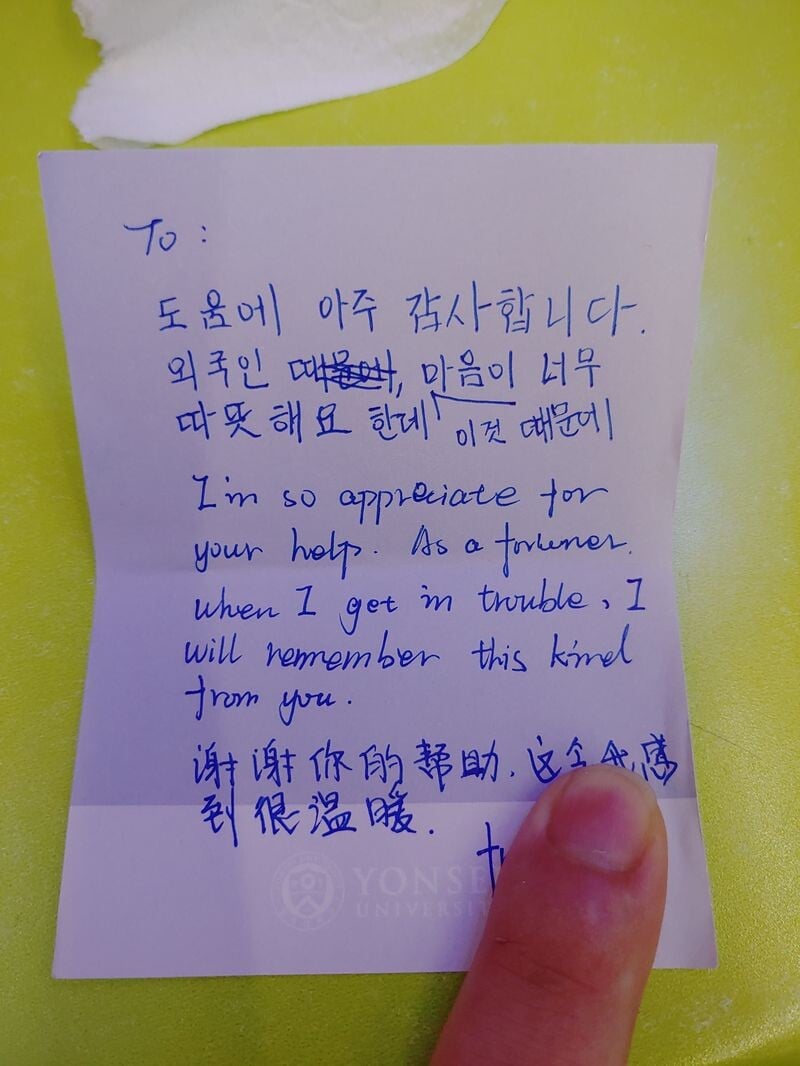 To :
도움에 아주 감사합니다.
외국인 마음이 너무
따뜻해요 한데 이것 때문에
I'm so appreciate for
your help. As a foriuner.
when I get in trouble, I
will remember this kind
from you.
谢谢你的帮助.这令我感
到很温暖.
YONSE
UNIVERSIT